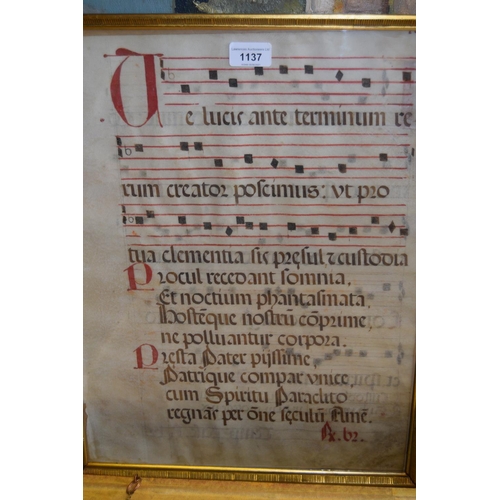 1137
Te lucis ante terminum re
rum creator poscimus: vt pro
tua clementia sis pręsul & custodia
Procul recedant somnia,
Et noctium phantasmata,
Hostēque nostrū cōprime,
ne polluantur corpora.
Presta Pater pijssime,
Patrique compar vnice,
cum Spiritu Paraclito
regnās per ōne sęculū Amē.
℟. br.